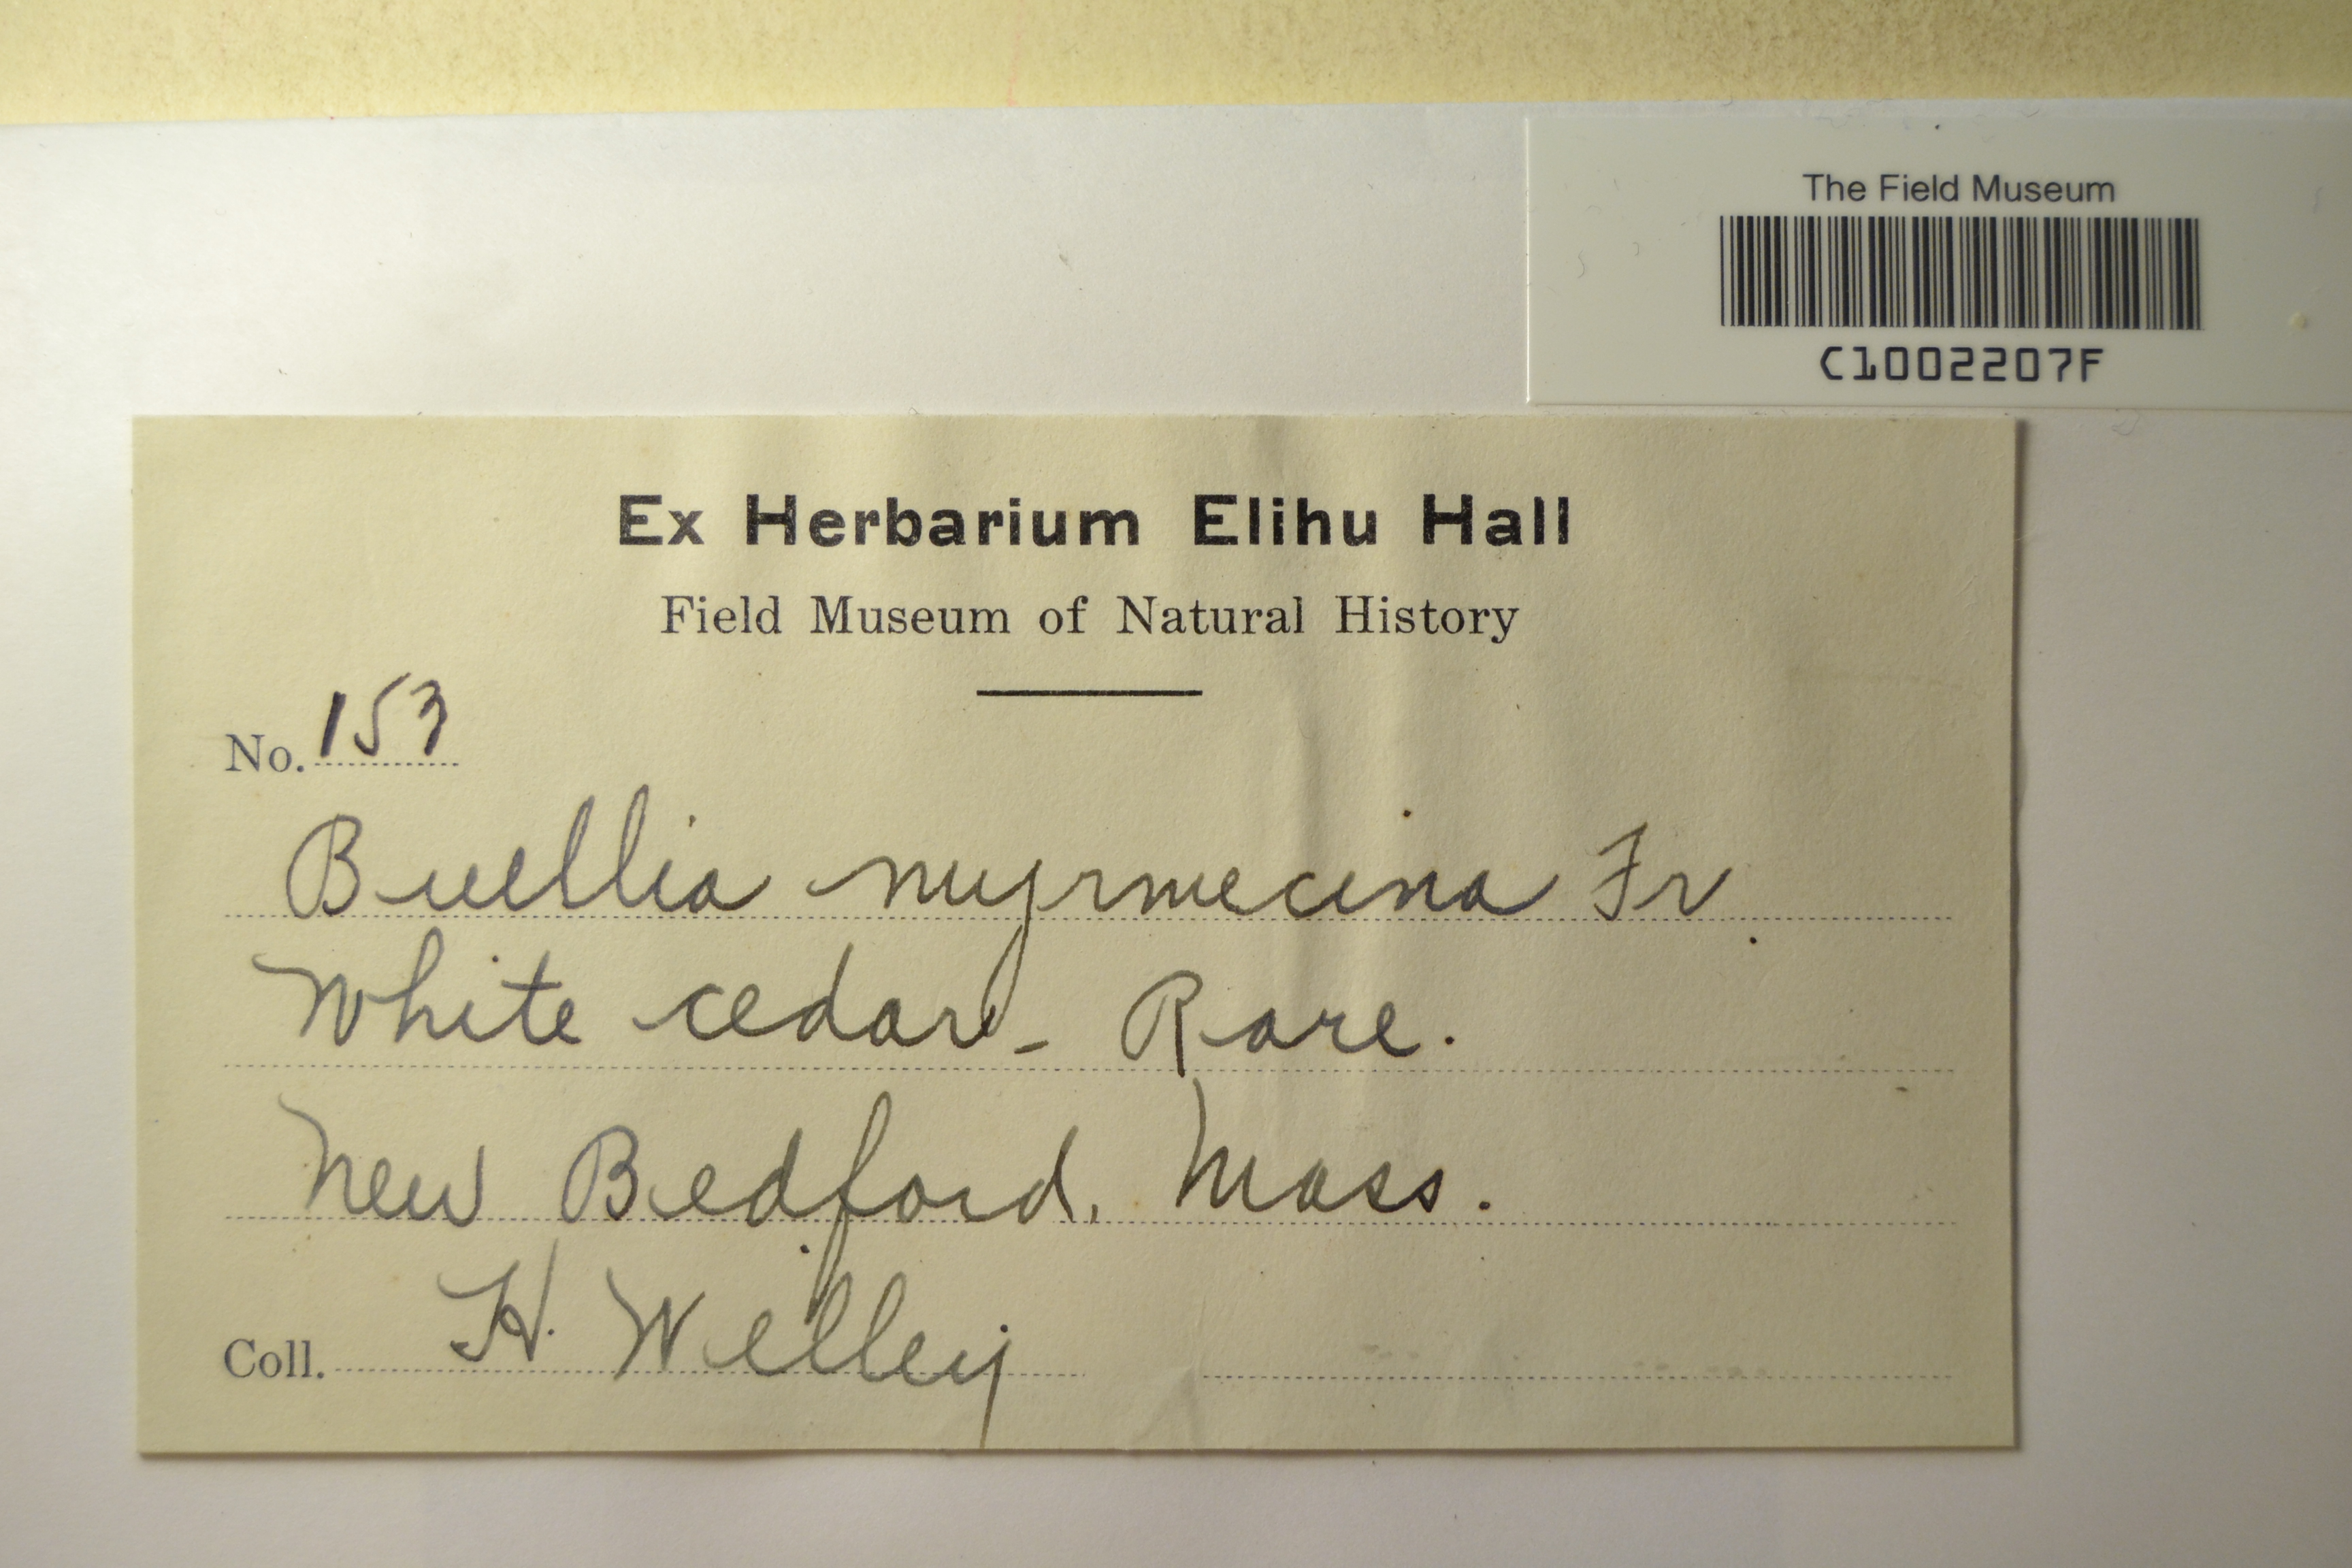 The Field Museum
C1002207F
Ex Herbarium Elihu Hall
Field Museum of Natural History
No. 153
Buellia myrmecina Fr
White cedar - Rare.
New Bedford, Mass.
Coll. H. Welley